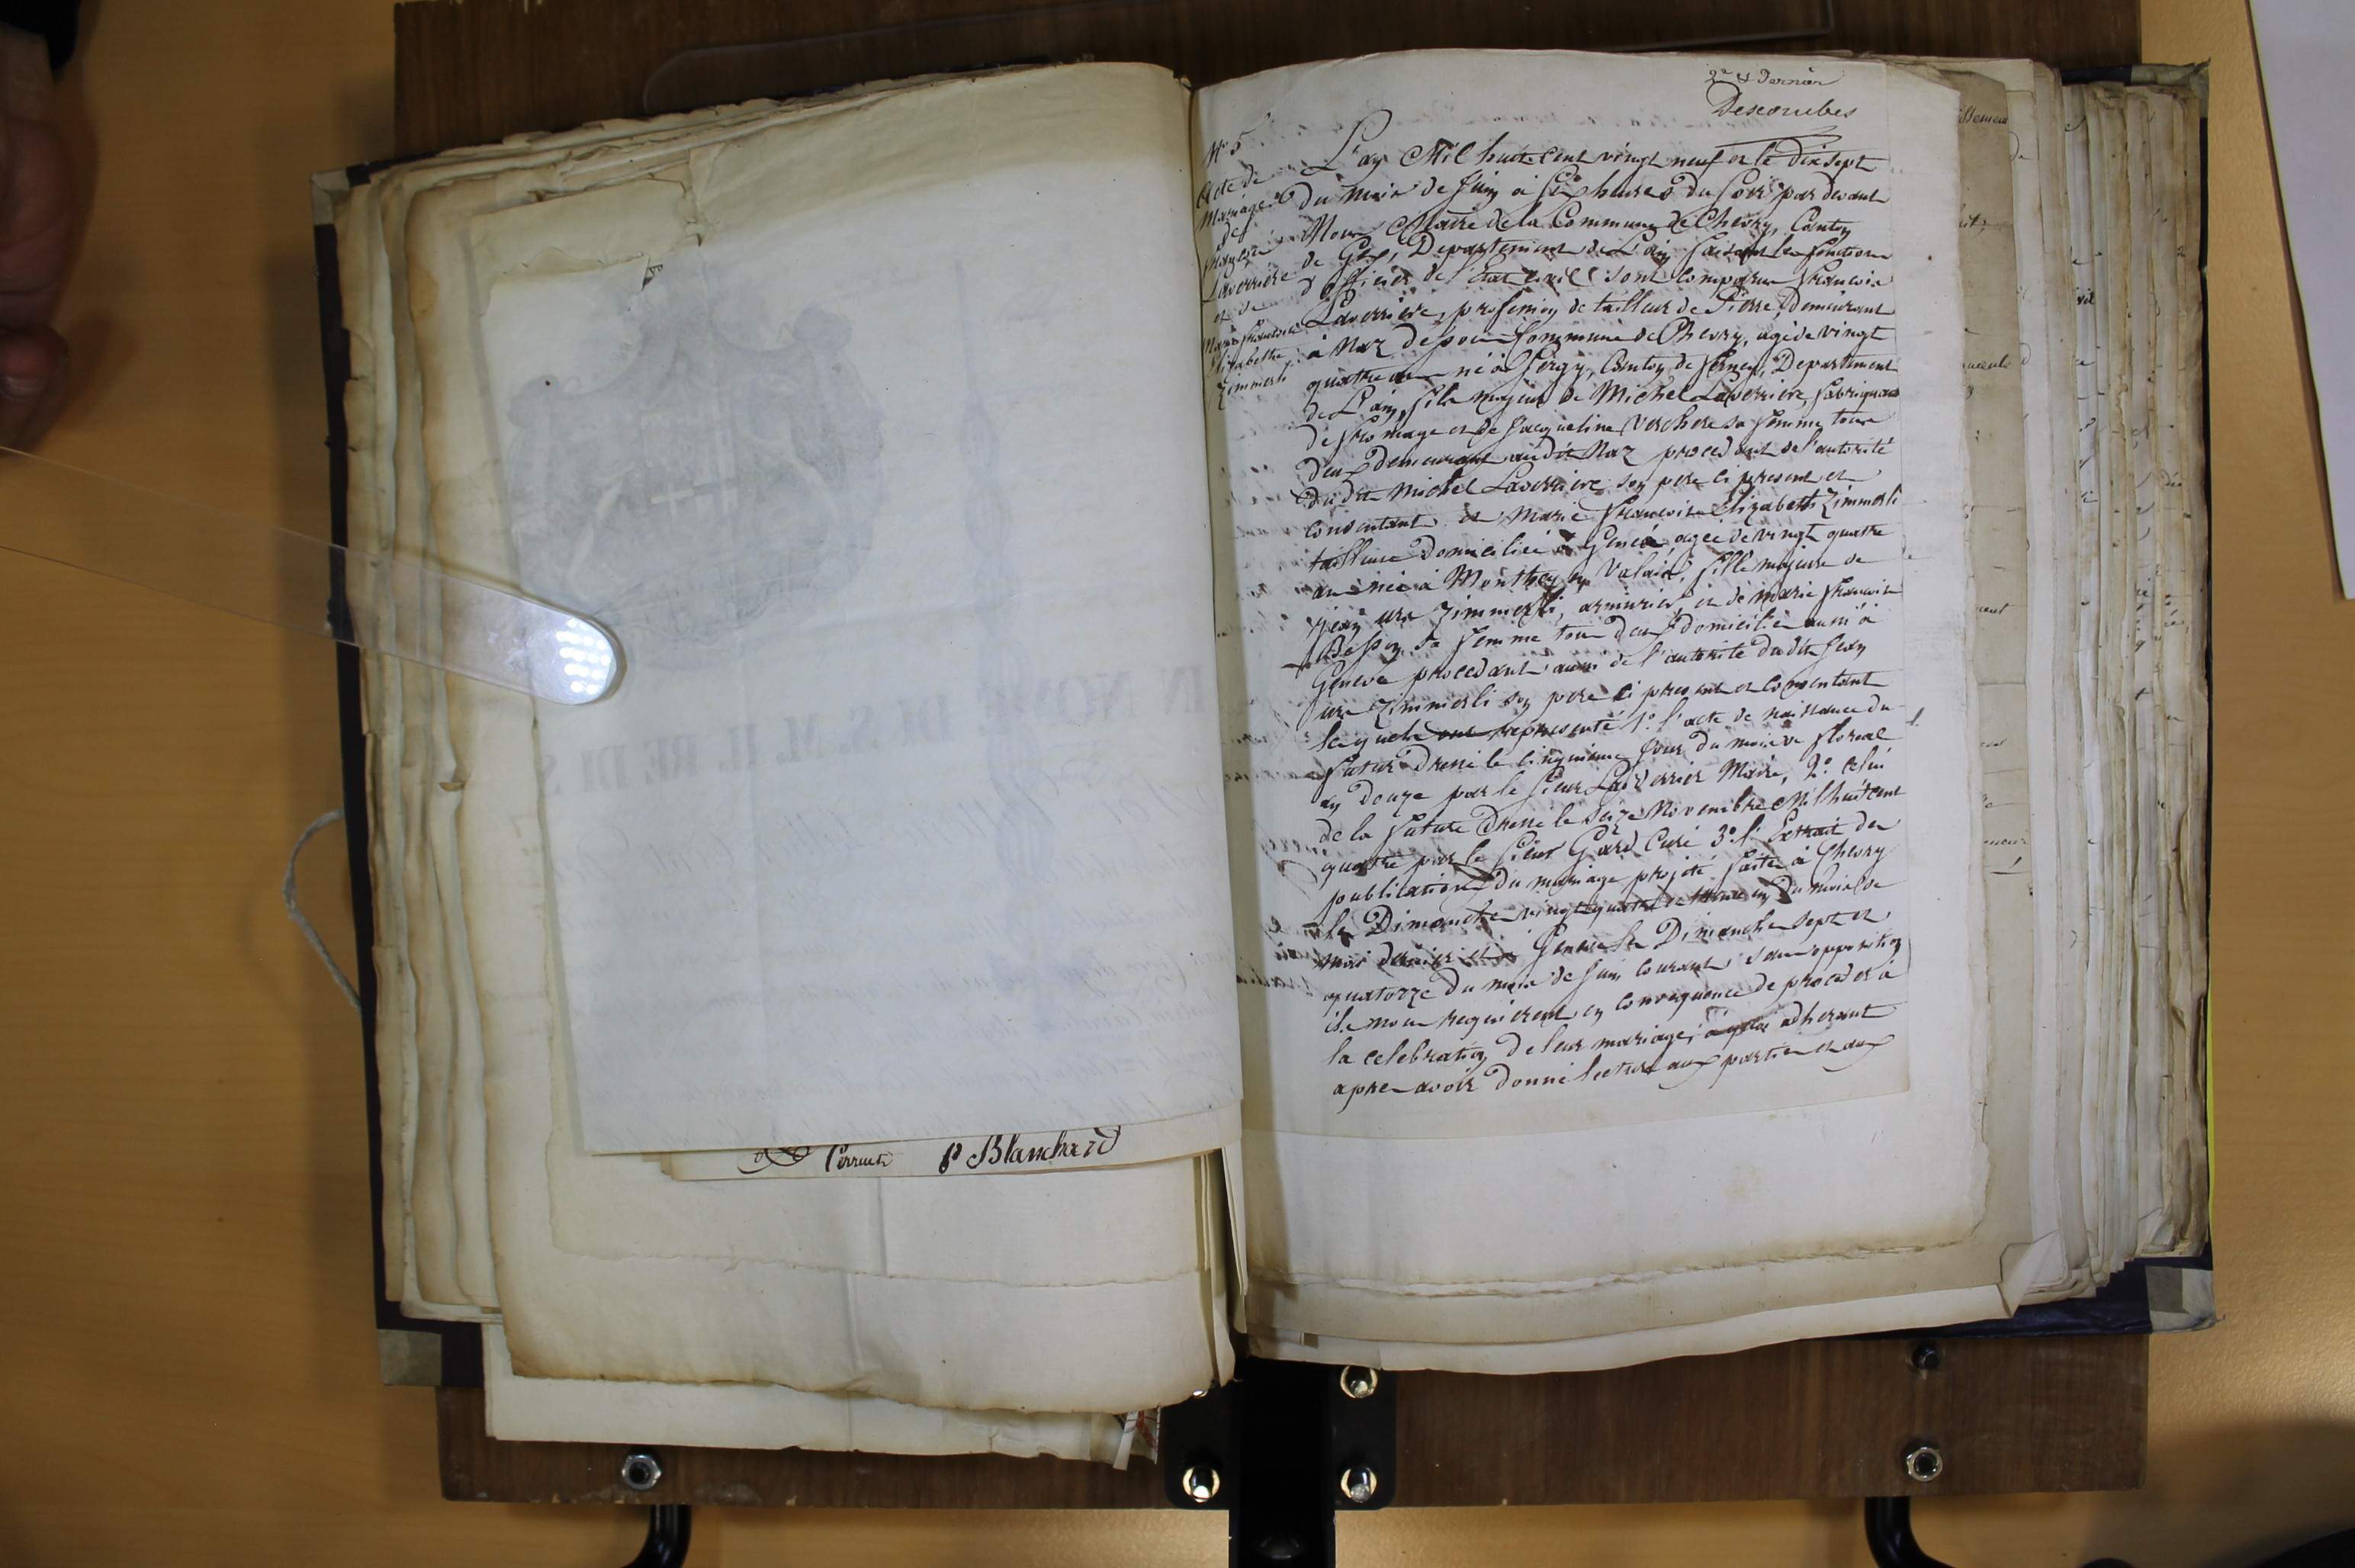 P Blanchard
2e et Dernier
Descombes
No 5
Acte de
Mariage
de
François
Laverriere
et de
Marie Francoise
Elisabethe
Zimmerli
L'an Mil huit Cent vingt neuf et le Dix sept
du mois de Juin à Six heures du Soir par devant
Nous Maire de la Commune de Chevry, Canton
de Gex, Departement de L'ain faisant les fonctions
d'officier de l'état Civil sont Comparus Francois
Laverriere, profession de tailleur de Pierre, Demeurant
à Naz Dessous Commune de Chevry, agé de vingt
quatre ans né à Sergy, Canton de Ferney, Departement
de L'ain, fils majeur de Michel Laverriere, fabriquant
de fromage et de Jacqueline Verchere sa femme tous
deux demeurant audit Naz procedant de l'autorité
du dit Michel Laverriere son pere ci present et
consentant et Marie Francoise Elizabeth Zimmerli
tailleuse Domiciliée à Genève agée de vingt quatre
ans née à Monthey en Valais, fille majeure de
Jean urs Zimmerli, armurier, et de marie francoise
Besson sa femme tous deux domiciliés aussi à
Geneve procedant aussi de l'autorité du dit Jean
urs Zimmerli son pere ci present et consentant
Lesquels ont représenté 1.o l'acte de naissance du
futur Dressé le cinquieme jour du mois de floreal
an Douze par le Sieur Laverrier Maire, 2.o Celui
de la future Dressé le seize Novembre Mil huit cent
quatre par le Sieur Gard Curé 3.o l'Extrait des
publications du mariage projeté faites à Chevry
les Dimanches vingt quatre et trente un du mois de
mai dernier et à Geneve les Dimanches sept et
quatorze du mois de Juin Courant, sans opposition
ils nous requierent en consequence de proceder à
la celebration de leur mariage; à quoi adherant
apres avoir donné lecture aux parties et aux